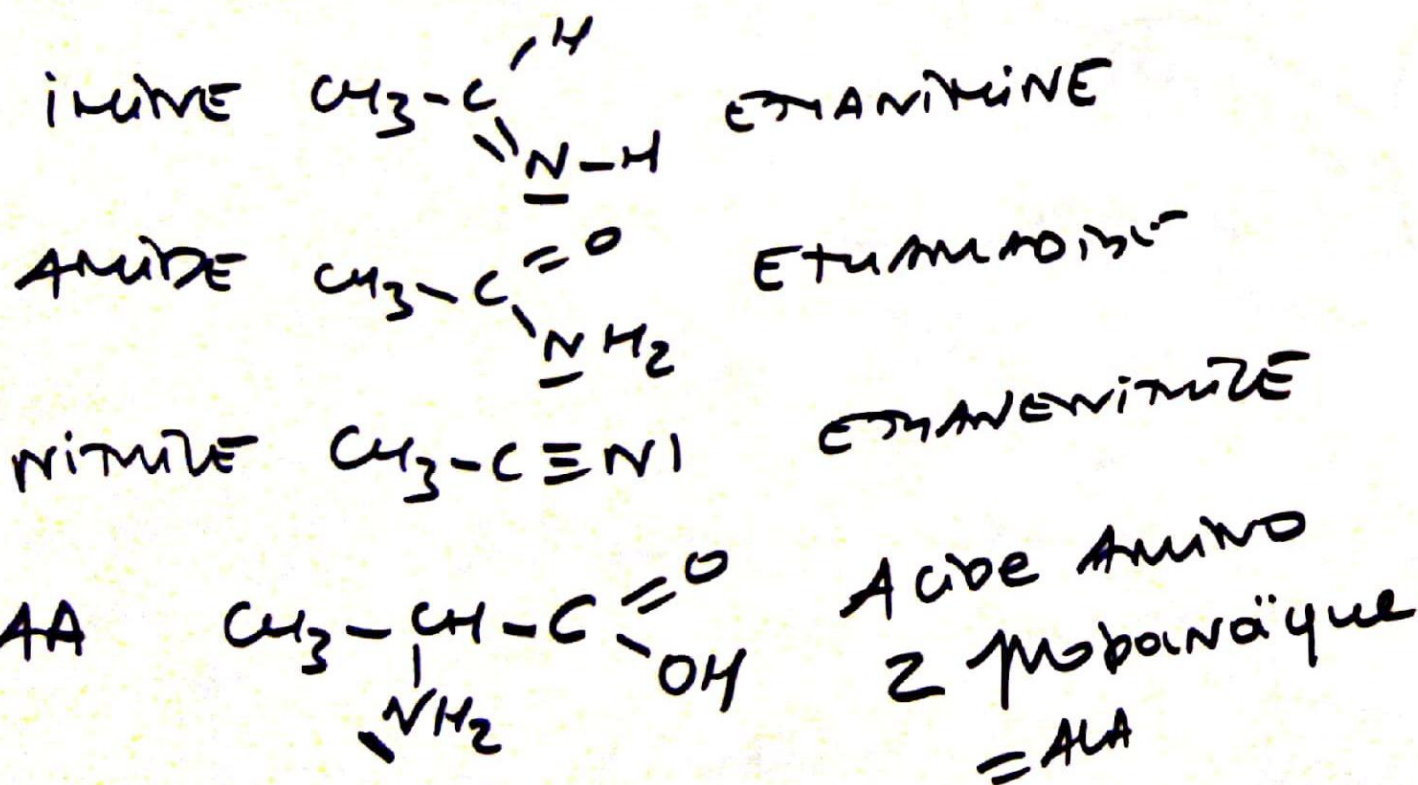 IMINE CH3-C H =N-H ETHANIMINE
AMIDE CH3-C =O NH2
NITRILE CH3-C≡N| ETHANENITRILE
AA CH3-CH-C =O OH Acide Amino
NH2 2 propanoïque
= ALA